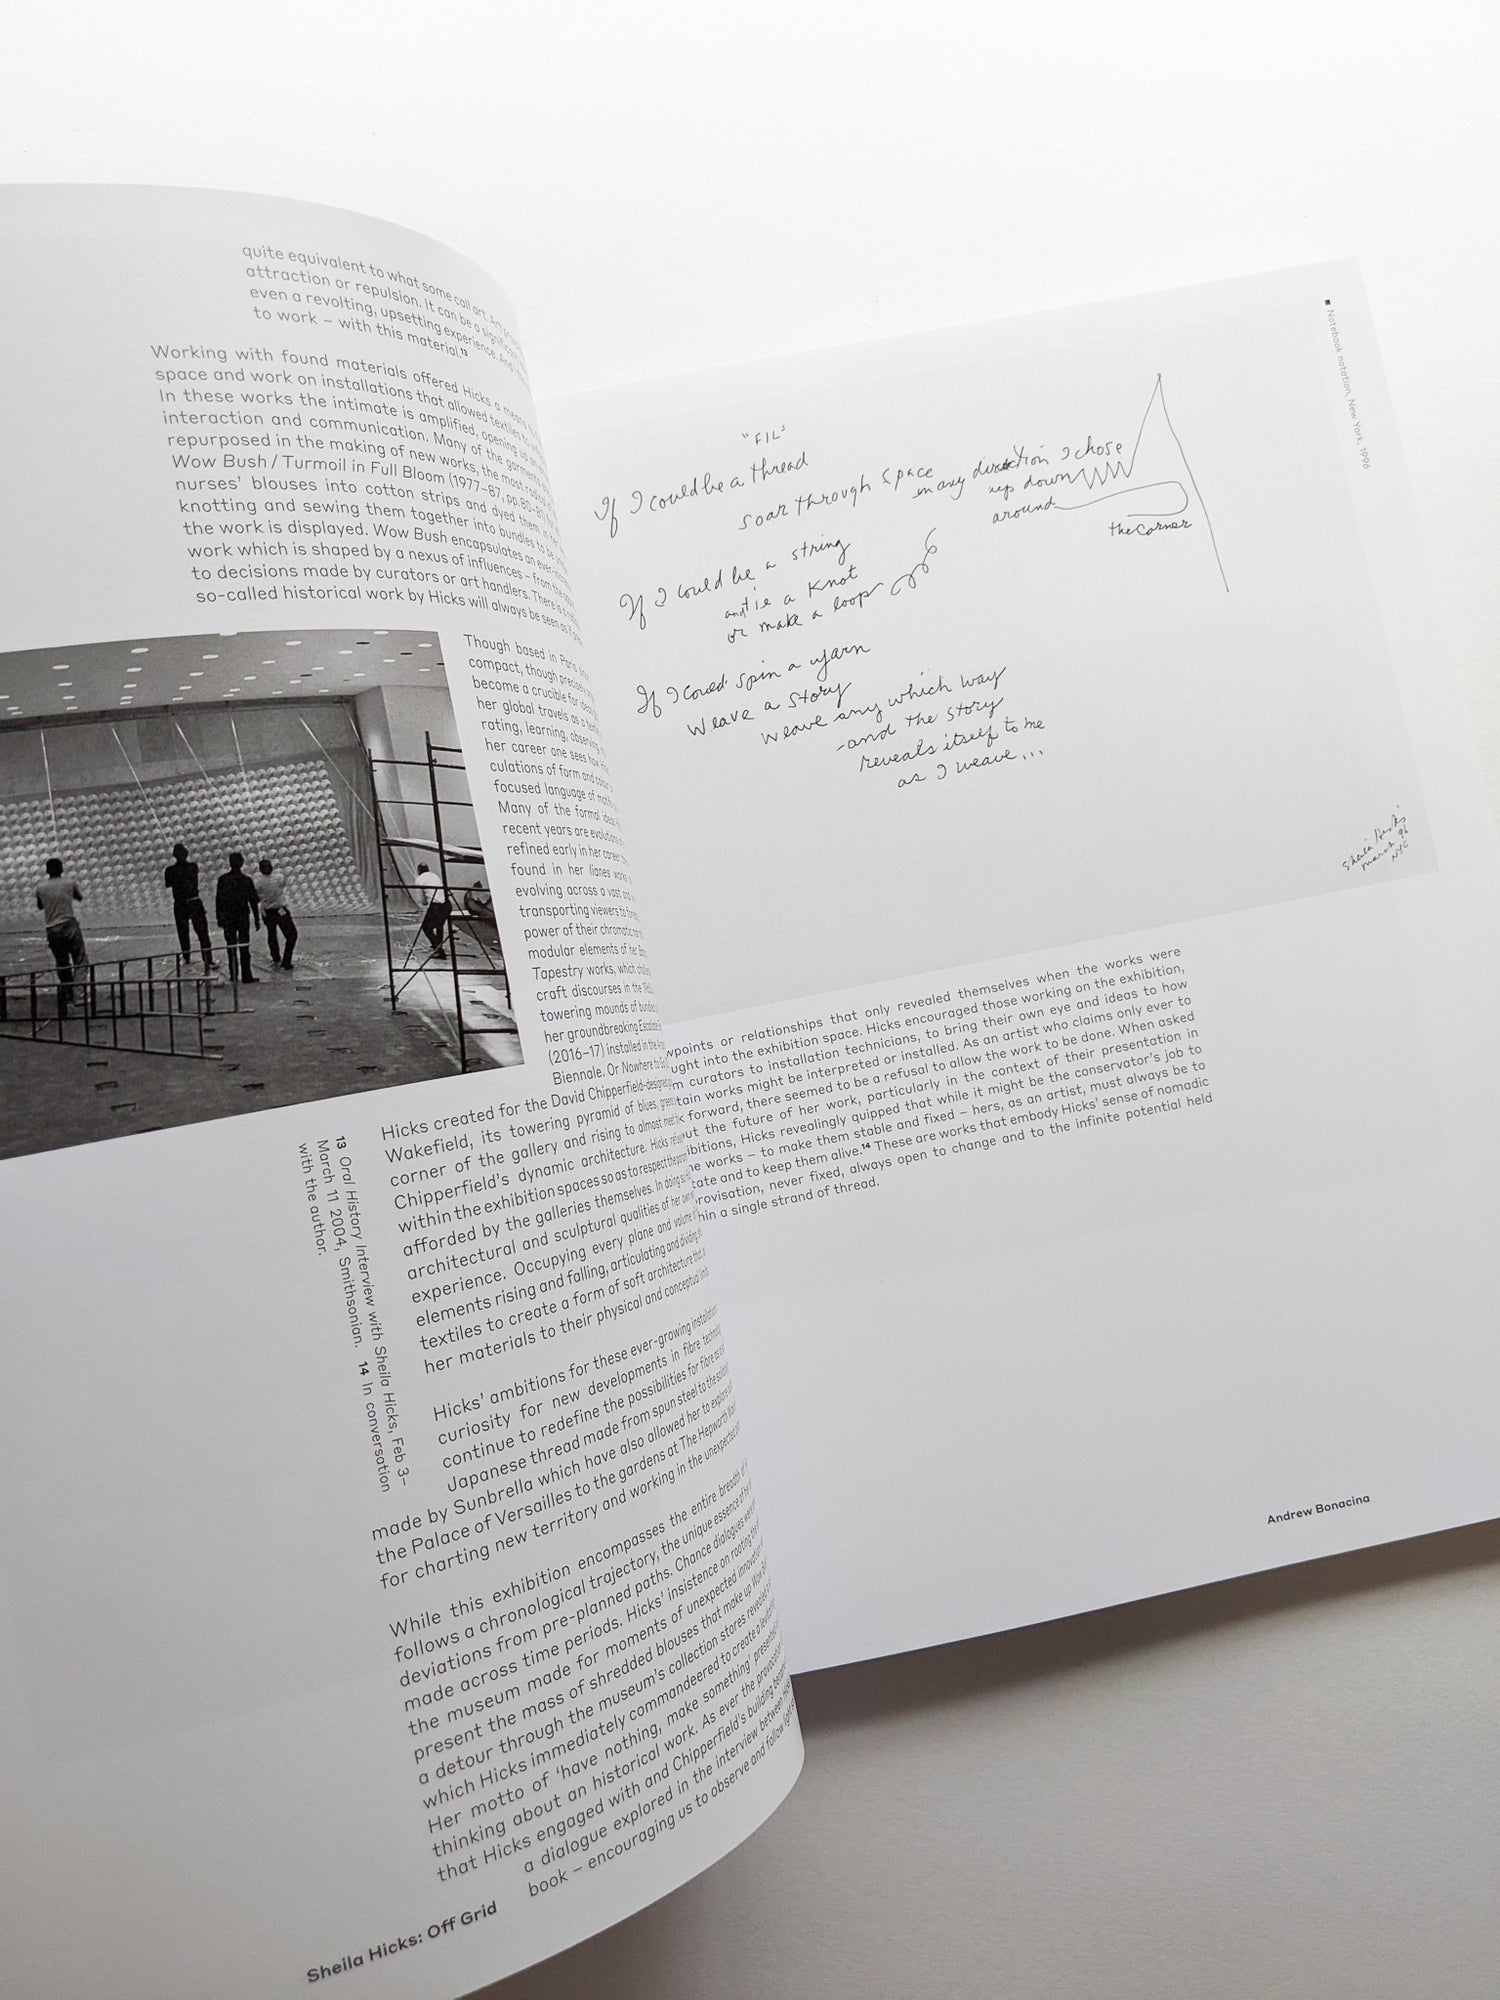 quite equivalent to what some call art. Art
attraction or repulsion. It can be a significant
even a revolting, upsetting experience. And I
to work – with this material.¹³
Working with found materials offered Hicks a means
space and work on installations that allowed textiles to
In these works the intimate is amplified, opening up
interaction and communication. Many of the garments
repurposed in the making of new works, the most
Wow Bush / Turmoil in Full Bloom (1977–87, pp.80–81)
nurses' blouses into cotton strips and dyed them
knotting and sewing them together into bundles to be
the work is displayed. Wow Bush encapsulates an
work which is shaped by a nexus of influences – from the
to decisions made by curators or art handlers. There is
so-called historical work by Hicks will always be seen as
Though based in Paris
compact, though precisely
become a crucible for ideas
her global travels as a
rating, learning, observing
her career one sees how
culations of form and colour
focused language of
Many of the formal ideas
recent years are evolutions
refined early in her career
found in her lianes works
evolving across a vast and
transporting viewers to
power of their chromatic
modular elements of her
Tapestry works, which
craft discourses in the
towering mounds of
her groundbreaking Escalade
(2016–17) installed in the
Biennale. Or Nowhere to Go
Hicks created for the David Chipperfield-designed
Wakefield, its towering pyramid of blues,
corner of the gallery and rising to almost meet
Chipperfield's dynamic architecture. Hicks
within the exhibition spaces so as to respect the
afforded by the galleries themselves. In doing so
architectural and sculptural qualities of her own
experience. Occupying every plane and volume
elements rising and falling, articulating and dividing
textiles to create a form of soft architecture that
her materials to their physical and conceptual limits
Hicks' ambitions for these ever-growing installations
curiosity for new developments in fibre technology
continue to redefine the possibilities for fibre as
Japanese thread made from spun steel to the
made by Sunbrella which have also allowed her to explore
the Palace of Versailles to the gardens at The Hepworth
for charting new territory and working in the unexpected
While this exhibition encompasses the entire breadth of
follows a chronological trajectory, the unique essence of her
deviations from pre-planned paths. Chance dialogues were
made across time periods. Hicks' insistence on rooting the
the museum made for moments of unexpected innovation
present the mass of shredded blouses that make up Wow Bush
a detour through the museum's collection stores revealed
which Hicks immediately commandeered to create a
Her motto of 'have nothing, make something' presented
thinking about an historical work. As ever the provocation
that Hicks engaged with and Chipperfield's building became
a dialogue explored in the interview between
book – encouraging us to observe and follow
13 Oral History Interview with Sheila Hicks, Feb 3–
March 11 2004, Smithsonian. 14 In conversation
with the author.
Sheila Hicks: Off Grid
■ Notebook notation, New York, 1996
"FIL"
If I could be a thread
soar through space
in any direction I chose
up down
around
the corner
If I could be a string
and tie a knot
or make a loop
If I could spin a yarn
weave a story
weave any which way
-and the story
reveals itself to me
as I weave...
Sheila Hicks
march 96
NYC
points or relationships that only revealed themselves when the works were
ught into the exhibition space. Hicks encouraged those working on the exhibition,
m curators to installation technicians, to bring their own eye and ideas to how
tain works might be interpreted or installed. As an artist who claims only ever to
k forward, there seemed to be a refusal to allow the work to be done. When asked
ut the future of her work, particularly in the context of their presentation in
ibitions, Hicks revealingly quipped that while it might be the conservator's job to
e works – to make them stable and fixed – hers, as an artist, must always be to
tate and to keep them alive.¹⁴ These are works that embody Hicks' sense of nomadic
rovisation, never fixed, always open to change and to the infinite potential held
hin a single strand of thread.
Andrew Bonacina